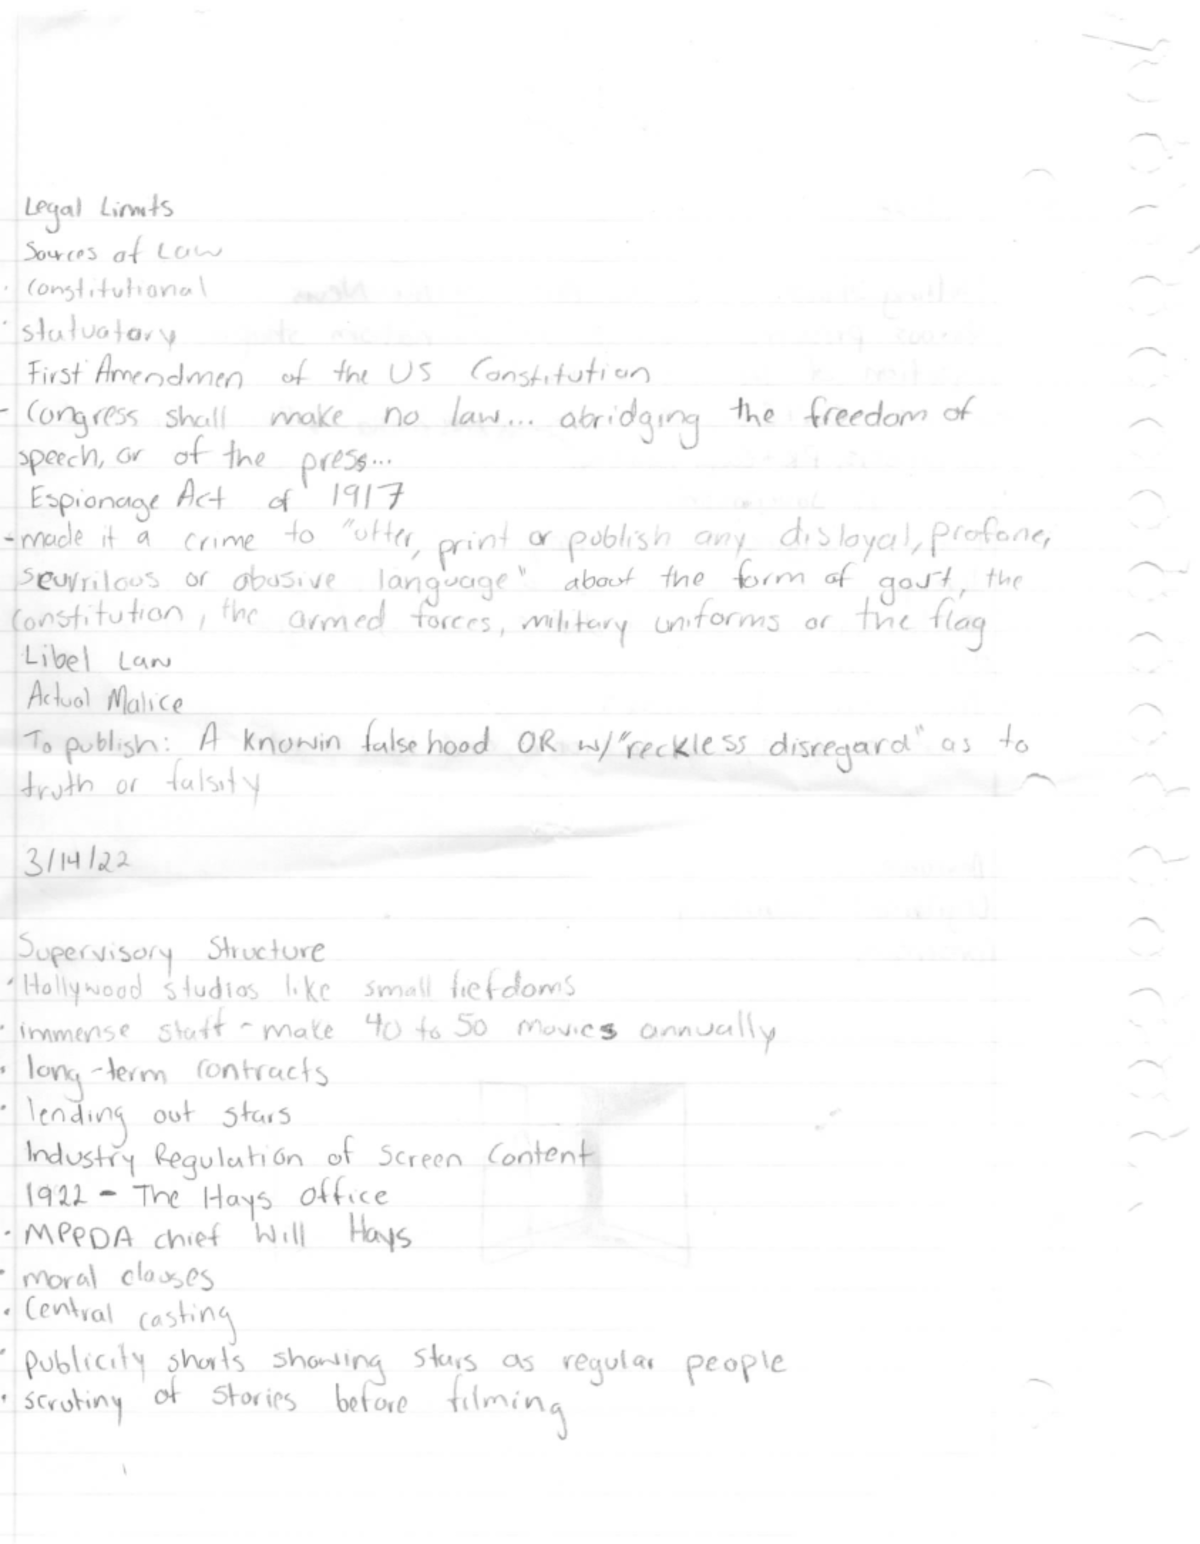 Legal Limits
Sources of Law
· Constitutional
· statuatory
First Amendmen of the US Constitution
- Congress shall make no law... abridging the freedom of
speech, or of the press...
Espionage Act of 1917
- made it a crime to "utter, print or publish any disloyal, profane,
scuvrilous or abusive language" about the form of gov't, the
Constitution, the armed forces, military uniforms or the flag
Libel Law
Actual Malice
To publish: A knowin falsehood OR w/"reckless disregard" as to
truth or falsity
3/14/22
Supervisory Structure
· Hollywood studios like small fiefdoms
· immense staff - make 40 to 50 movies annually
· long-term contracts
· lending out stars
Industry Regulation of Screen Content
1922 - The Hays Office
· MPPDA chief Will Hays
· moral clauses
· Central casting
· publicity shorts showing stars as regular people
· scrutiny of stories before filming